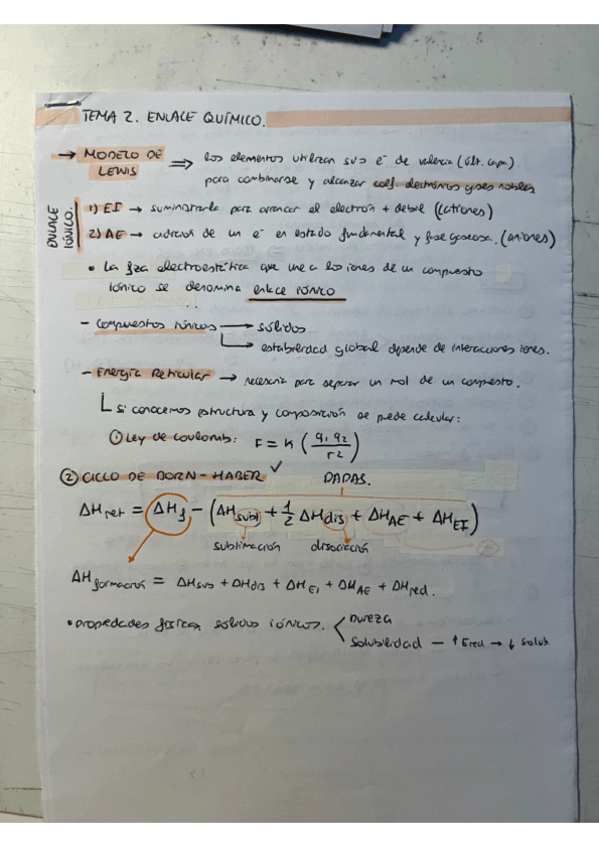 TEMA 2. ENLACE QUÍMICO.
→ MODELO DE LEWIS ⇒ los elementos utilizan sus e⁻ de valencia (últ. capa)
para combinarse y alcanzar conf. electrónica gases nobles
ENLACE IÓNICO.
1) EI → suministrarla para arrancar el electrón + debil (cationes)
2) AE → adición de un e⁻ en estado fundamental y fase gaseosa. (aniones)
• La fza electroestática que une a los iones de un compuesto
iónico se denomina enlace iónico
- Compuestos iónicos → sólidos
→ estabilidad global depende de interacciones iones.
- Energía Reticular → necesaria para separar un mol de un compuesto.
si conocemos estructura y composición se puede calcular:
① Ley de coulomb: F = K (q₁ q₂ / r²)
② CICLO DE BORN-HABER ✓ DADAS.
ΔHret = ΔHf - (ΔHsubl + 1/2 ΔHdis + ΔHAE + ΔHEI)
sublimación disociación
ΔHformación = ΔHsub + ΔHdis + ΔHEI + ΔHAE + ΔHred.
• propiedades físicas sólidos iónicos. < Dureza
Solubilidad - ↑ Ered → ↓ solub.